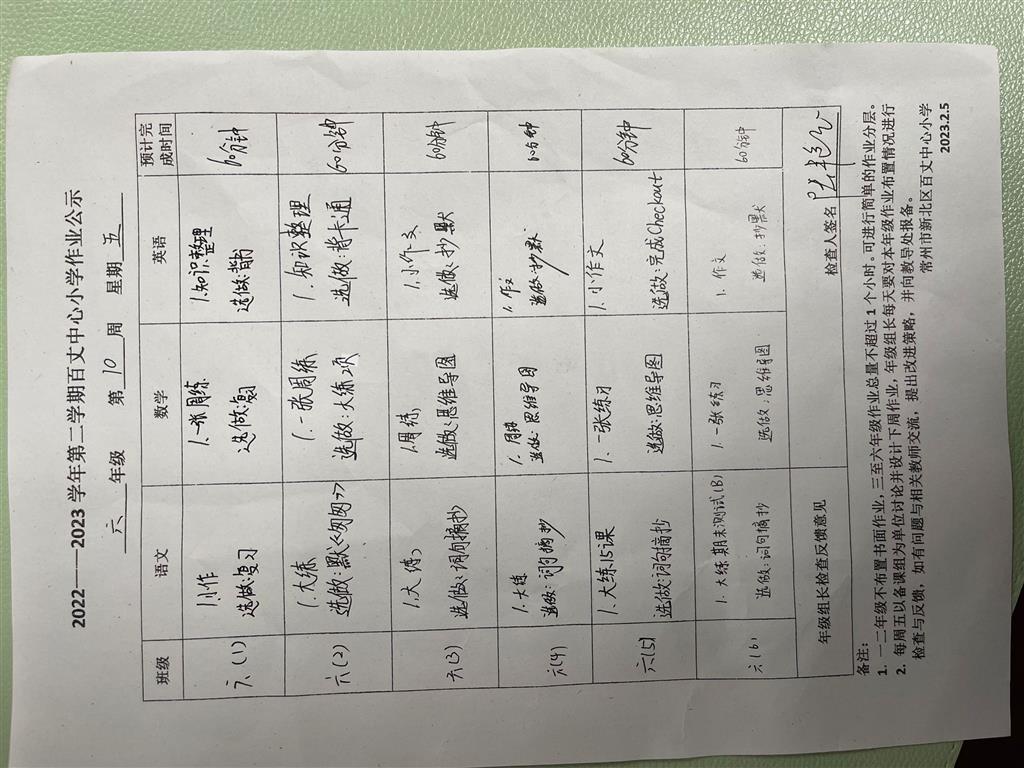 2022——2023 学年第二学期百丈中心小学作业公示
六 年级 第 10 周 星期 五
班级 语文 数学 英语 预计完成时间
六(1) 1.小作 1.一张周练 1.知识整理 60分钟
选做:复习 选做:复习 选做:背
六(2) 1.大练 1.一张周练 1.知识整理 60分钟
选做:默《匆匆》 选做:大练2项 选做:背卡通
六(3) 1.大练 1.周练 1.小作文 60分钟
选做:词句摘抄 选做:思维导图 选做:抄默
六(4) 1.大练 1.周练 1.作文 60分钟
选做:词句摘抄 选做:思维导图 选做:抄默
六(5) 1.大练15课 1.一张练习 1.小作文 60分钟
选做:词句摘抄 选做:思维导图 选做:完成Checkout
六(6) 1.大练期末测试(B) 1.一张练习 1.作文 60分钟
选做:词句摘抄 选做:思维导图 选做:抄默
年级组长检查反馈意见 检查人签名
备注:
1. 一二年级不布置书面作业,三至六年级作业总量不超过 1 个小时。可进行简单的作业分层。
2. 每周五以备课组为单位讨论并设计下周作业,年级组长每天要对本年级作业布置情况进行
检查与反馈,如有问题与相关教师交流,提出改进策略,并向教导处报备。
常州市新北区百丈中心小学
2023.2.5